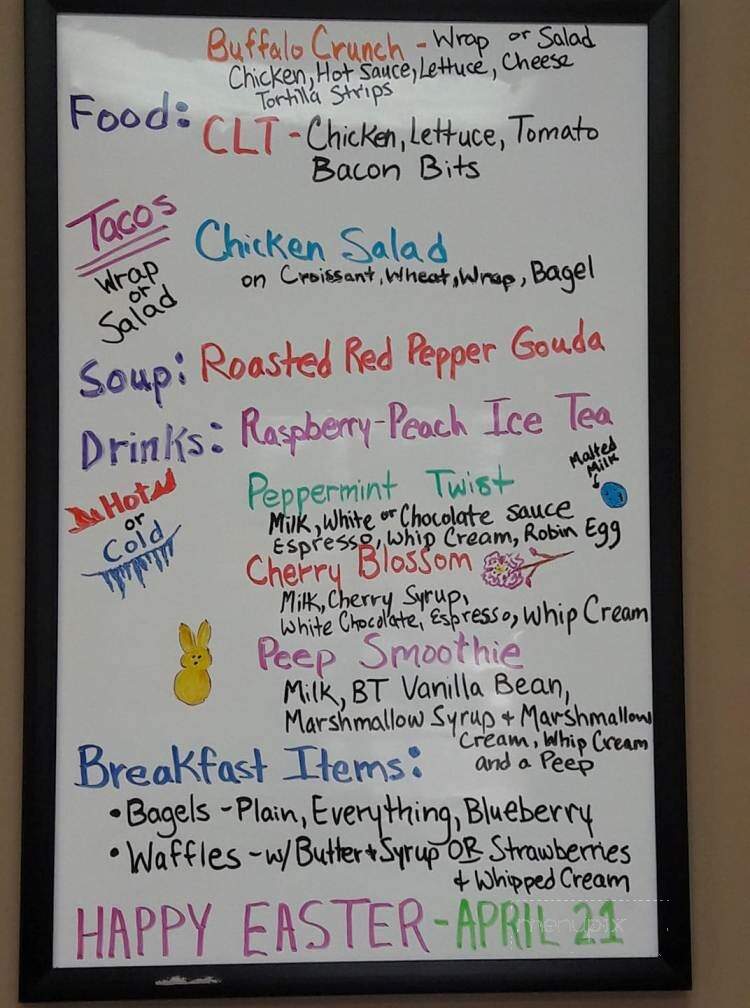 Buffalo Crunch - Wrap or Salad
Chicken, Hot Sauce, Lettuce, Cheese
Tortilla Strips
Food:
CLT - Chicken, Lettuce, Tomato
Bacon Bits
Tacos
Wrap
or
Salad
Chicken Salad
on Croissant, Wheat, Wrap, Bagel
Soup: Roasted Red Pepper Gouda
Drinks: Raspberry-Peach Ice Tea
Hot
or
Cold
Peppermint Twist
Malted
Milk
Milk, White or Chocolate sauce
Espresso, Whip Cream, Robin Egg
Cherry Blossom
Milk, Cherry Syrup,
White Chocolate, Espresso, Whip Cream
Peep Smoothie
Milk, BT Vanilla Bean,
Marshmallow Syrup + Marshmallow
Cream, Whip Cream
and a Peep
Breakfast Items:
• Bagels - Plain, Everything, Blueberry
• Waffles - w/ Butter + Syrup OR Strawberries
+ Whipped Cream
HAPPY EASTER - APRIL 21
menupix